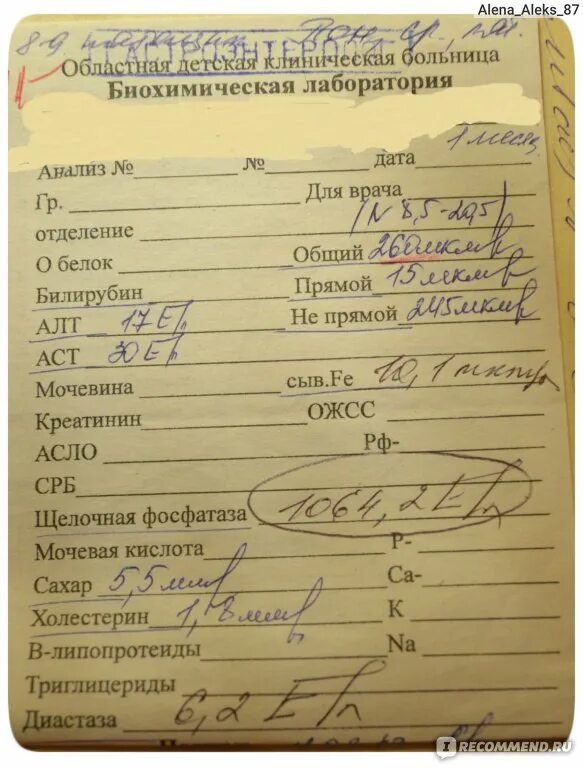 Alena_Aleks_87
ГАСТРОЭНТЕРОЛОГ
Областная детская клиническая больница
Биохимическая лаборатория
1 месяц
Анализ № № дата
Гр. Для врача
(N 8,5-20,5)
отделение
О белок Общий 260мкмл
Билирубин Прямой 15мкмл
АЛТ 17 Е/л Не прямой 245мкмл
АСТ 30 Е/л
Мочевина сыв.Fe 10,1
Креатинин ОЖСС
АСЛО Рф-
СРБ
Щелочная фосфатаза 1064,2 Е/л
Мочевая кислота Р-
Сахар 5,5 Са-
Холестерин 1,8 К
В-липопротеиды Na
Триглицериды
Диастаза 6,2 Е/л
IRECOMMEND.RU